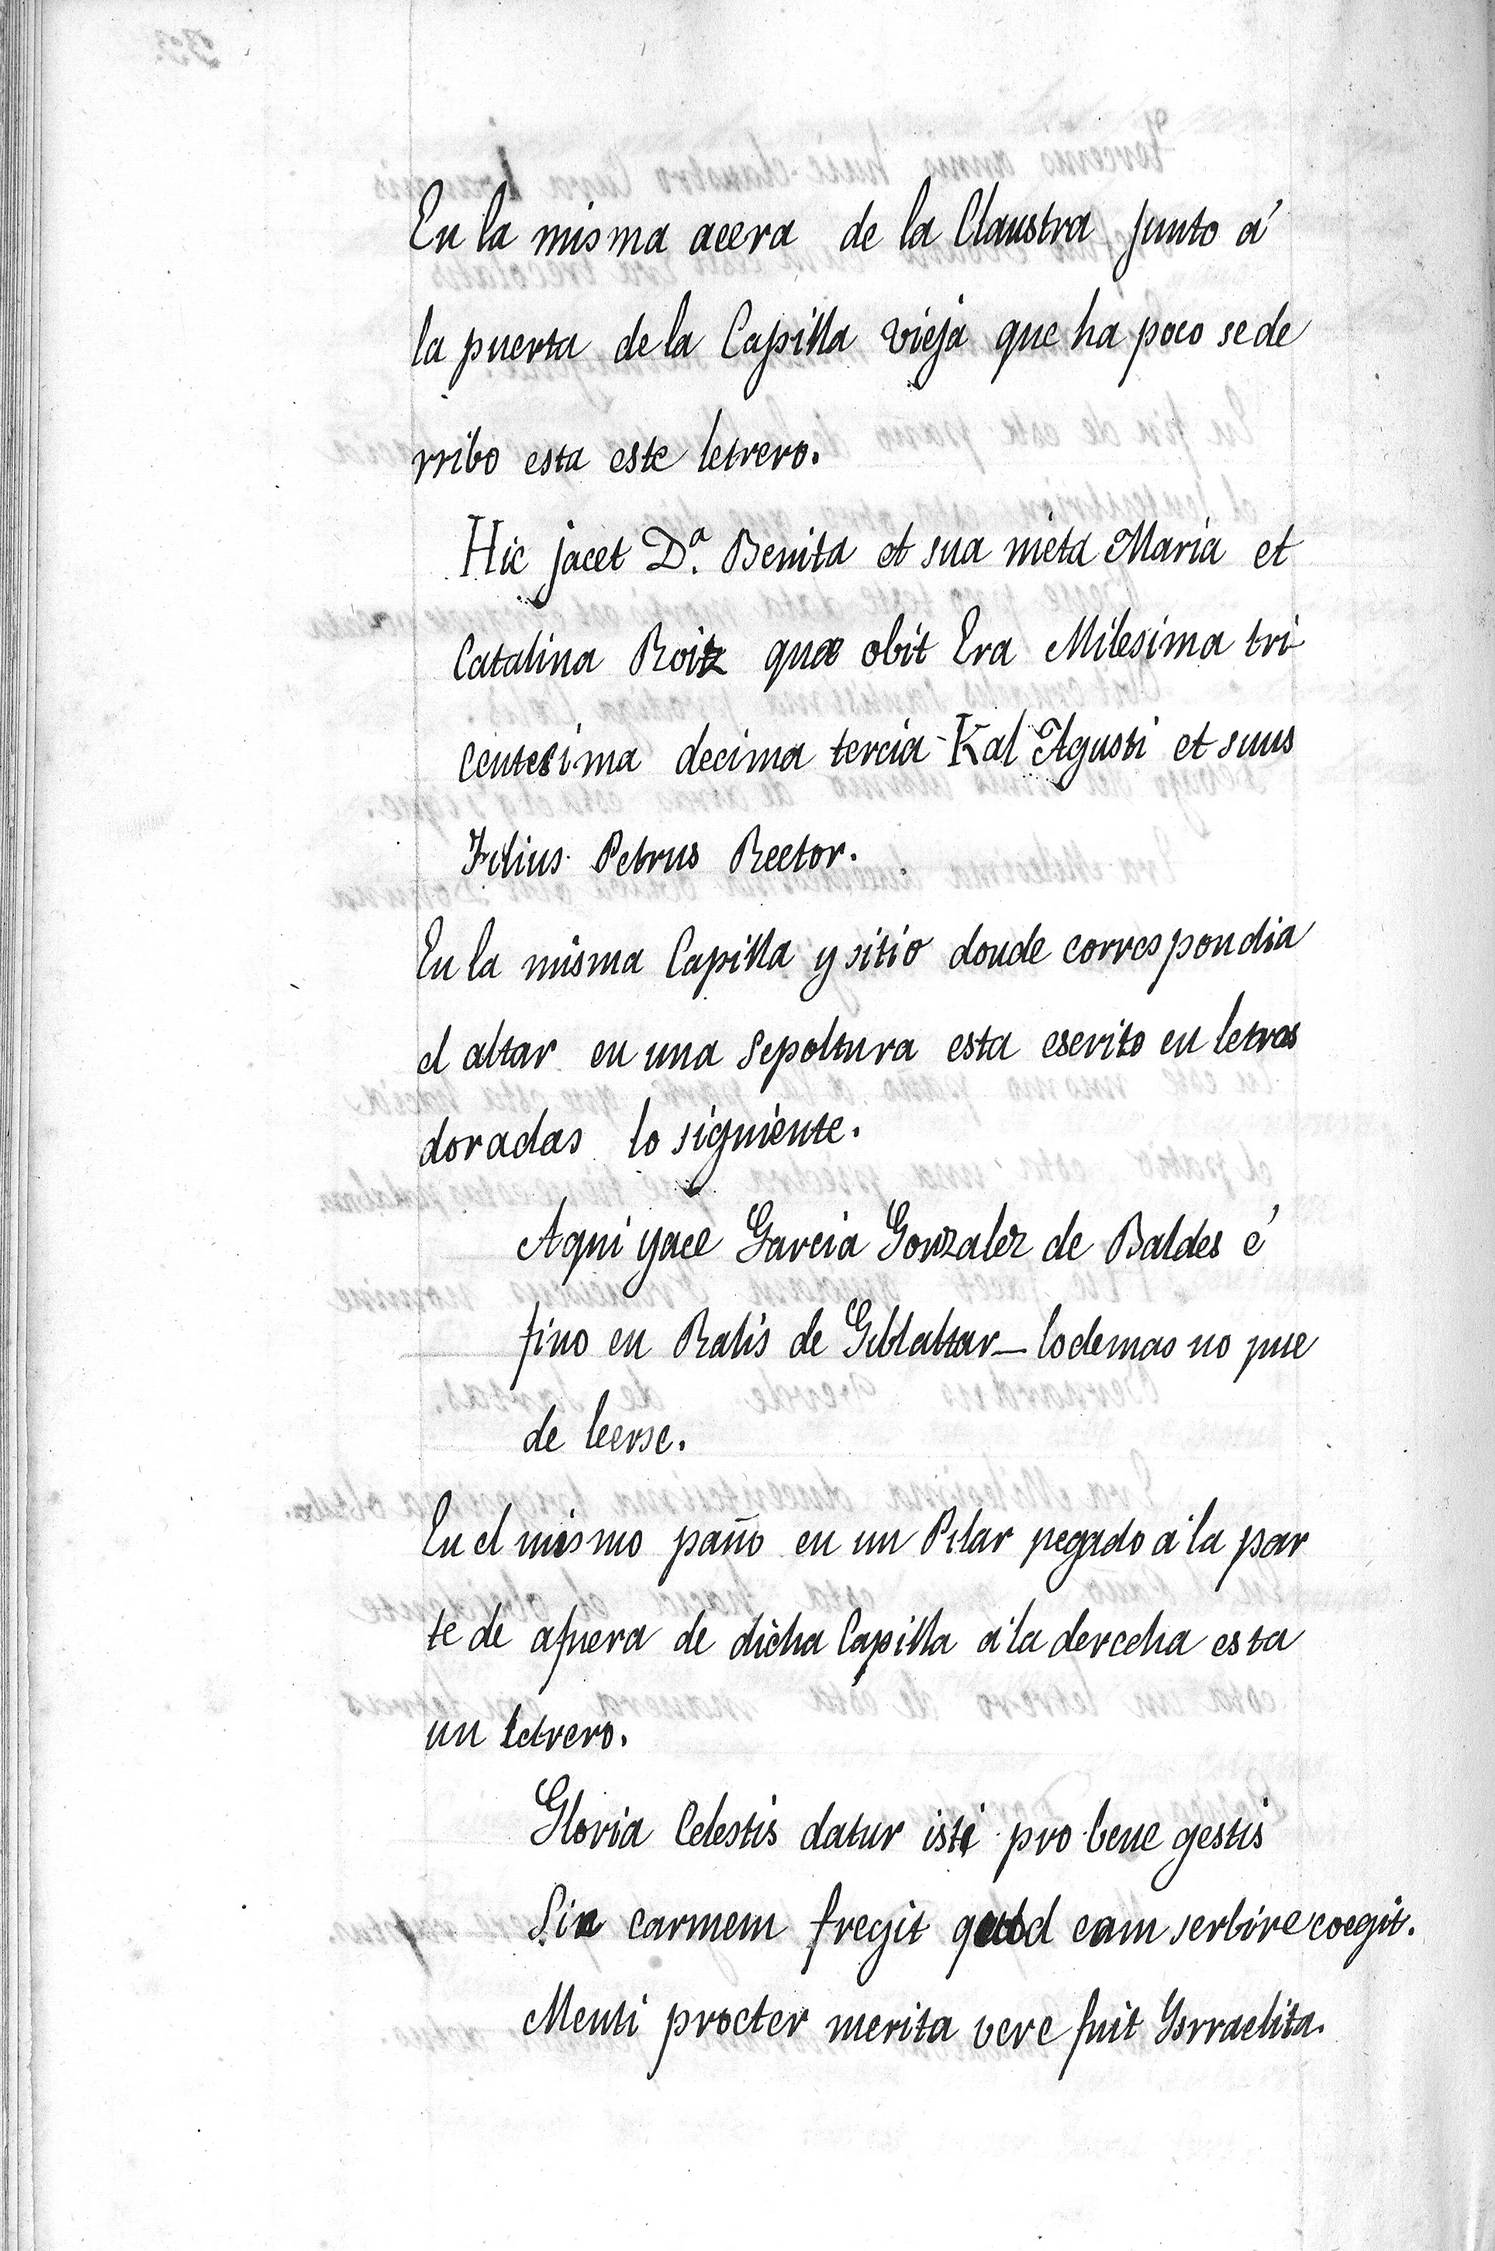 En la misma acera de la Claustra junto á
la puerta de la Capilla vieja que ha poco se de
rribo esta este letrero.
Hic jacet D.ª Benita et sua nieta Maria et
Catalina Roiz quæ obit Era Milesima tri
centesima decima tercia Kal Agusti et suus
Filius Petrus Rector.
En la misma Capilla y sitio donde correspondia
el altar en una sepoltura esta escrito en letras
doradas lo siguiente.
Aqui yace Garcia Gonzalez de Baldes é
fino en Ralis de Giblaltar_ lo demas no pue
de leerse.
En el mismo paño en un Pilar pegado á la par
te de afuera de dicha Capilla á la derecha esta
un letrero.
Gloria Celestis datur isti pro bene gestis
Sic carmem fregit quod eam serbire coegit.
Menti procter merita vere fuit Ysrraelita.